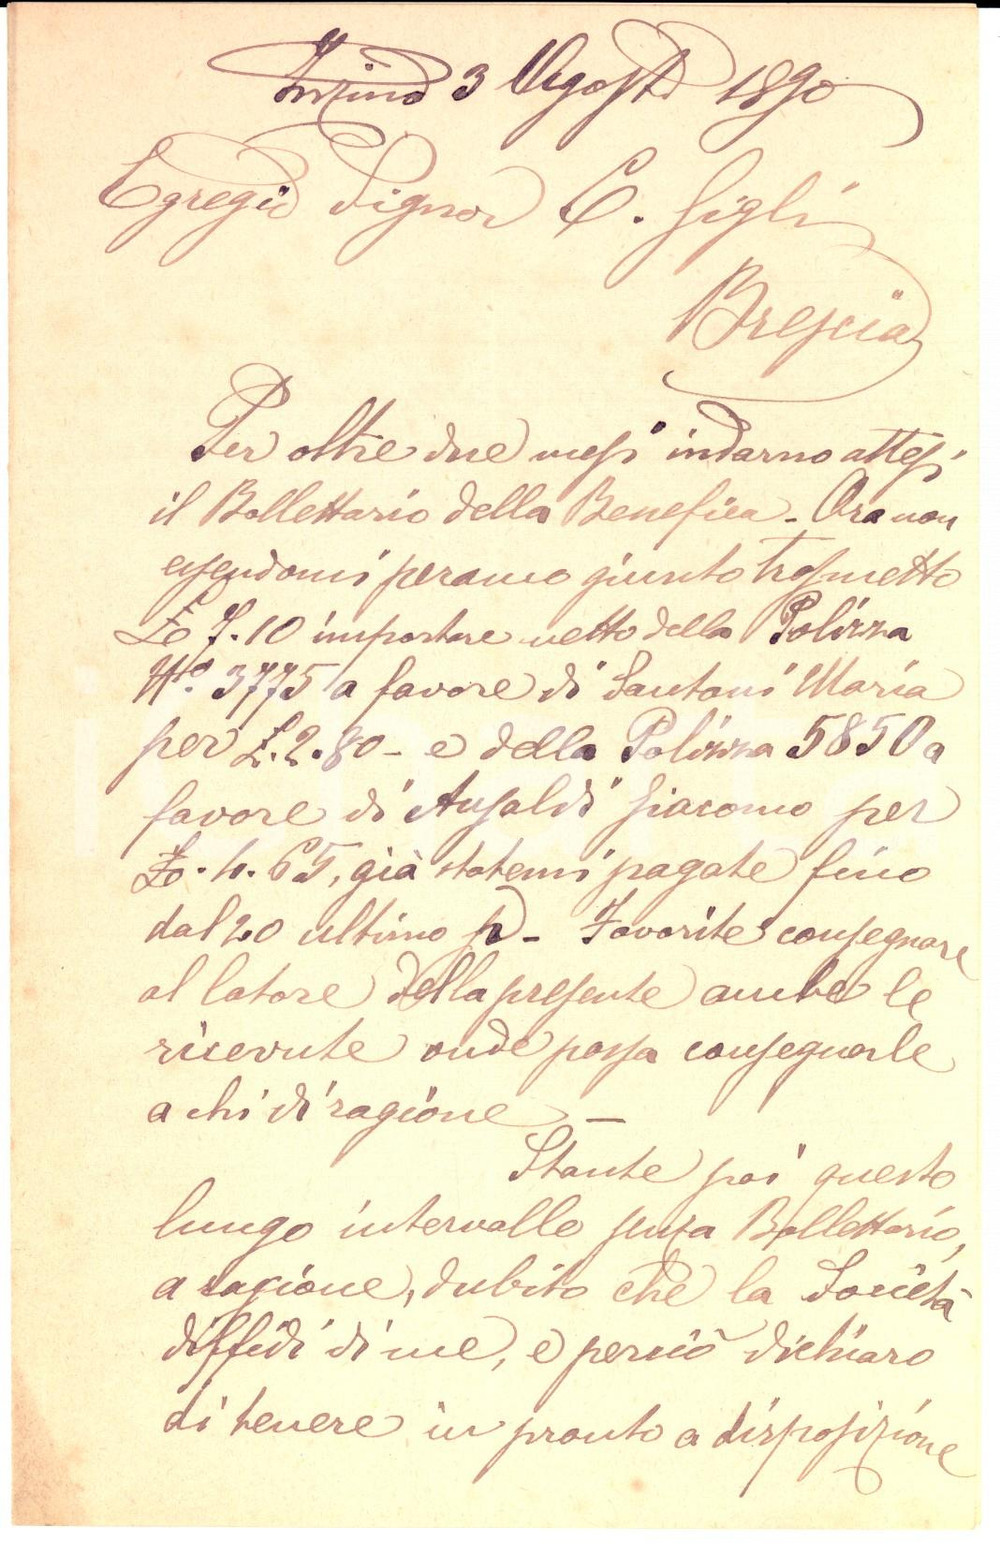 Inzino 3 Agosto 1890
Egregio Signor C. Gigli
Brescia
Per oltre due mesi indarno attesi
il Bollettario della Benefica - Ora non
essendomi peranco giunto trasmetto
L. 7.10 importare netto della Polizza
No. 3775 a favore di Santoni Maria
per L. 2.80 - e della Polizza 5850 a
favore di Ansaldi Giacomo per
L. 4.65, già statemi pagate fino
dal 20 ultimo p. - Favorite consegnare
al latore della presente anche le
ricevute onde possa consegnarle
a chi di ragione -
Stante poi questo
lungo intervallo senza Bollettario,
a ragione, dubito che la Società
diffidi di me, e perciò dichiaro
di tenere in pronto a disposizione